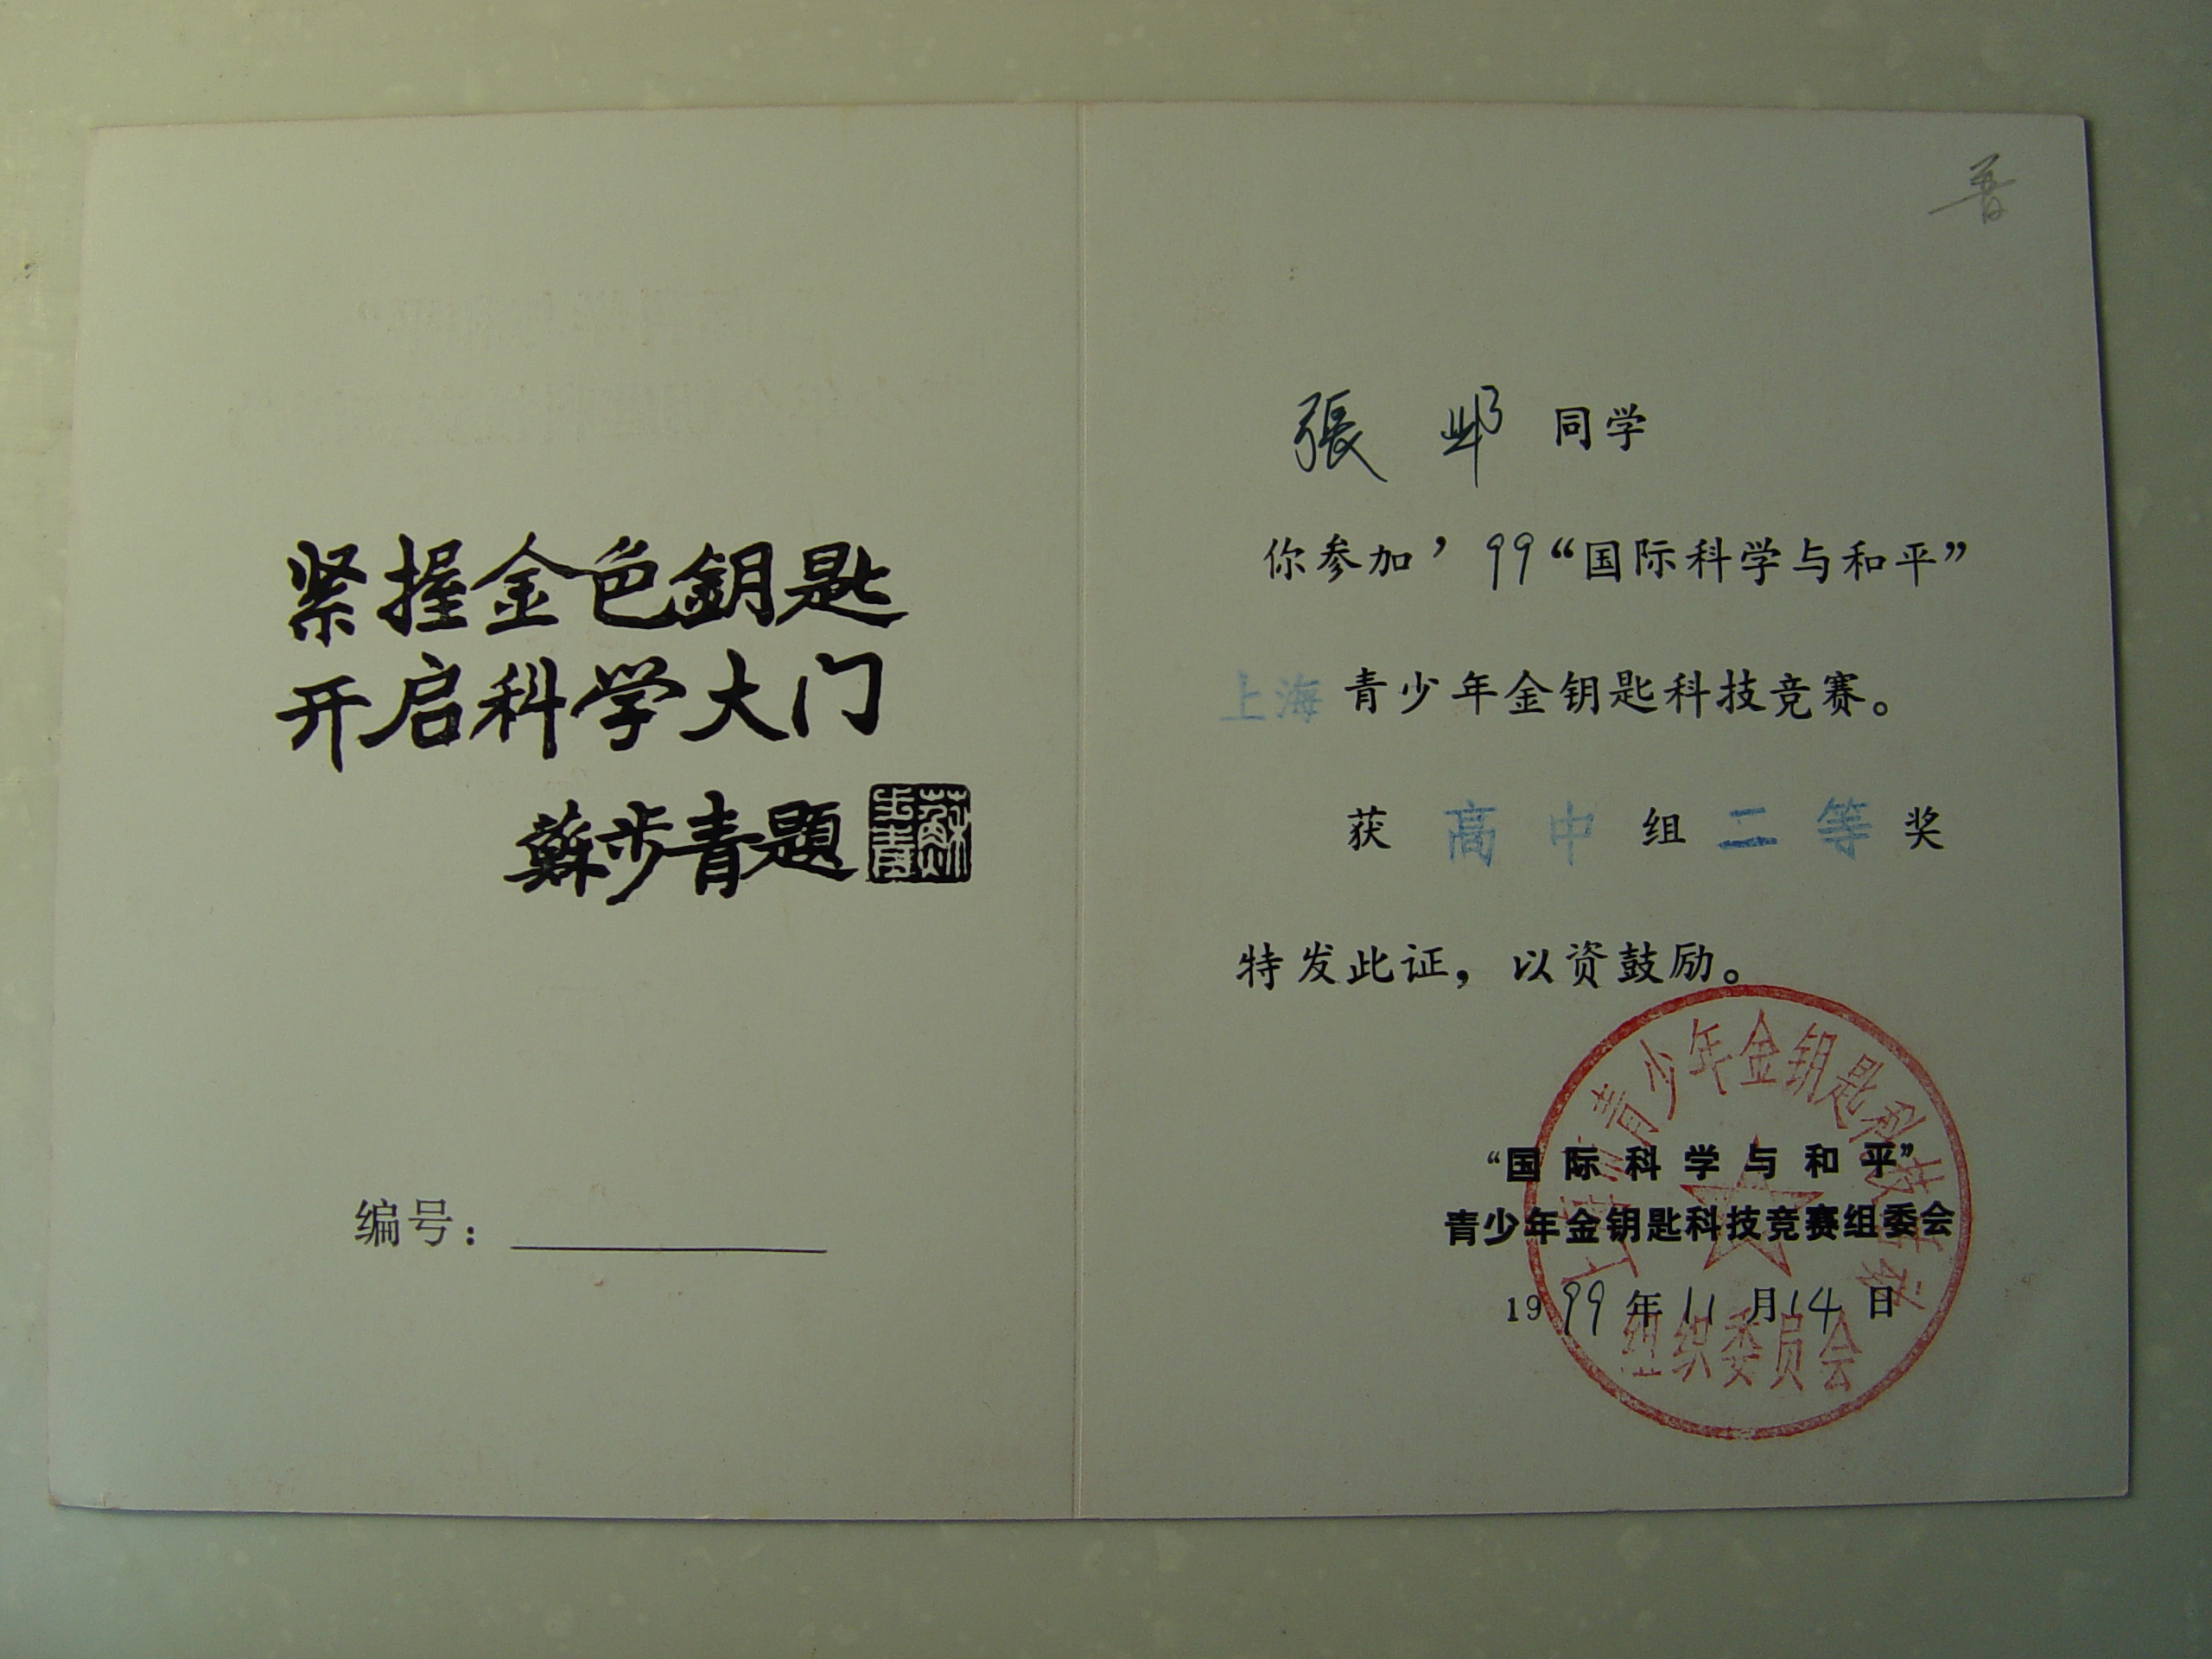 紧握金色钥匙
开启科学大门
蘇步青题
蘇步青
编号：
普
張 邺 同学
你参加’99“国际科学与和平”
上海青少年金钥匙科技竞赛。
获 高中 组 二等 奖
特发此证，以资鼓励。
“国际科学与和平”
青少年金钥匙科技竞赛组委会
1999年11月14日
上海市青少年金钥匙科技竞赛
组织委员会